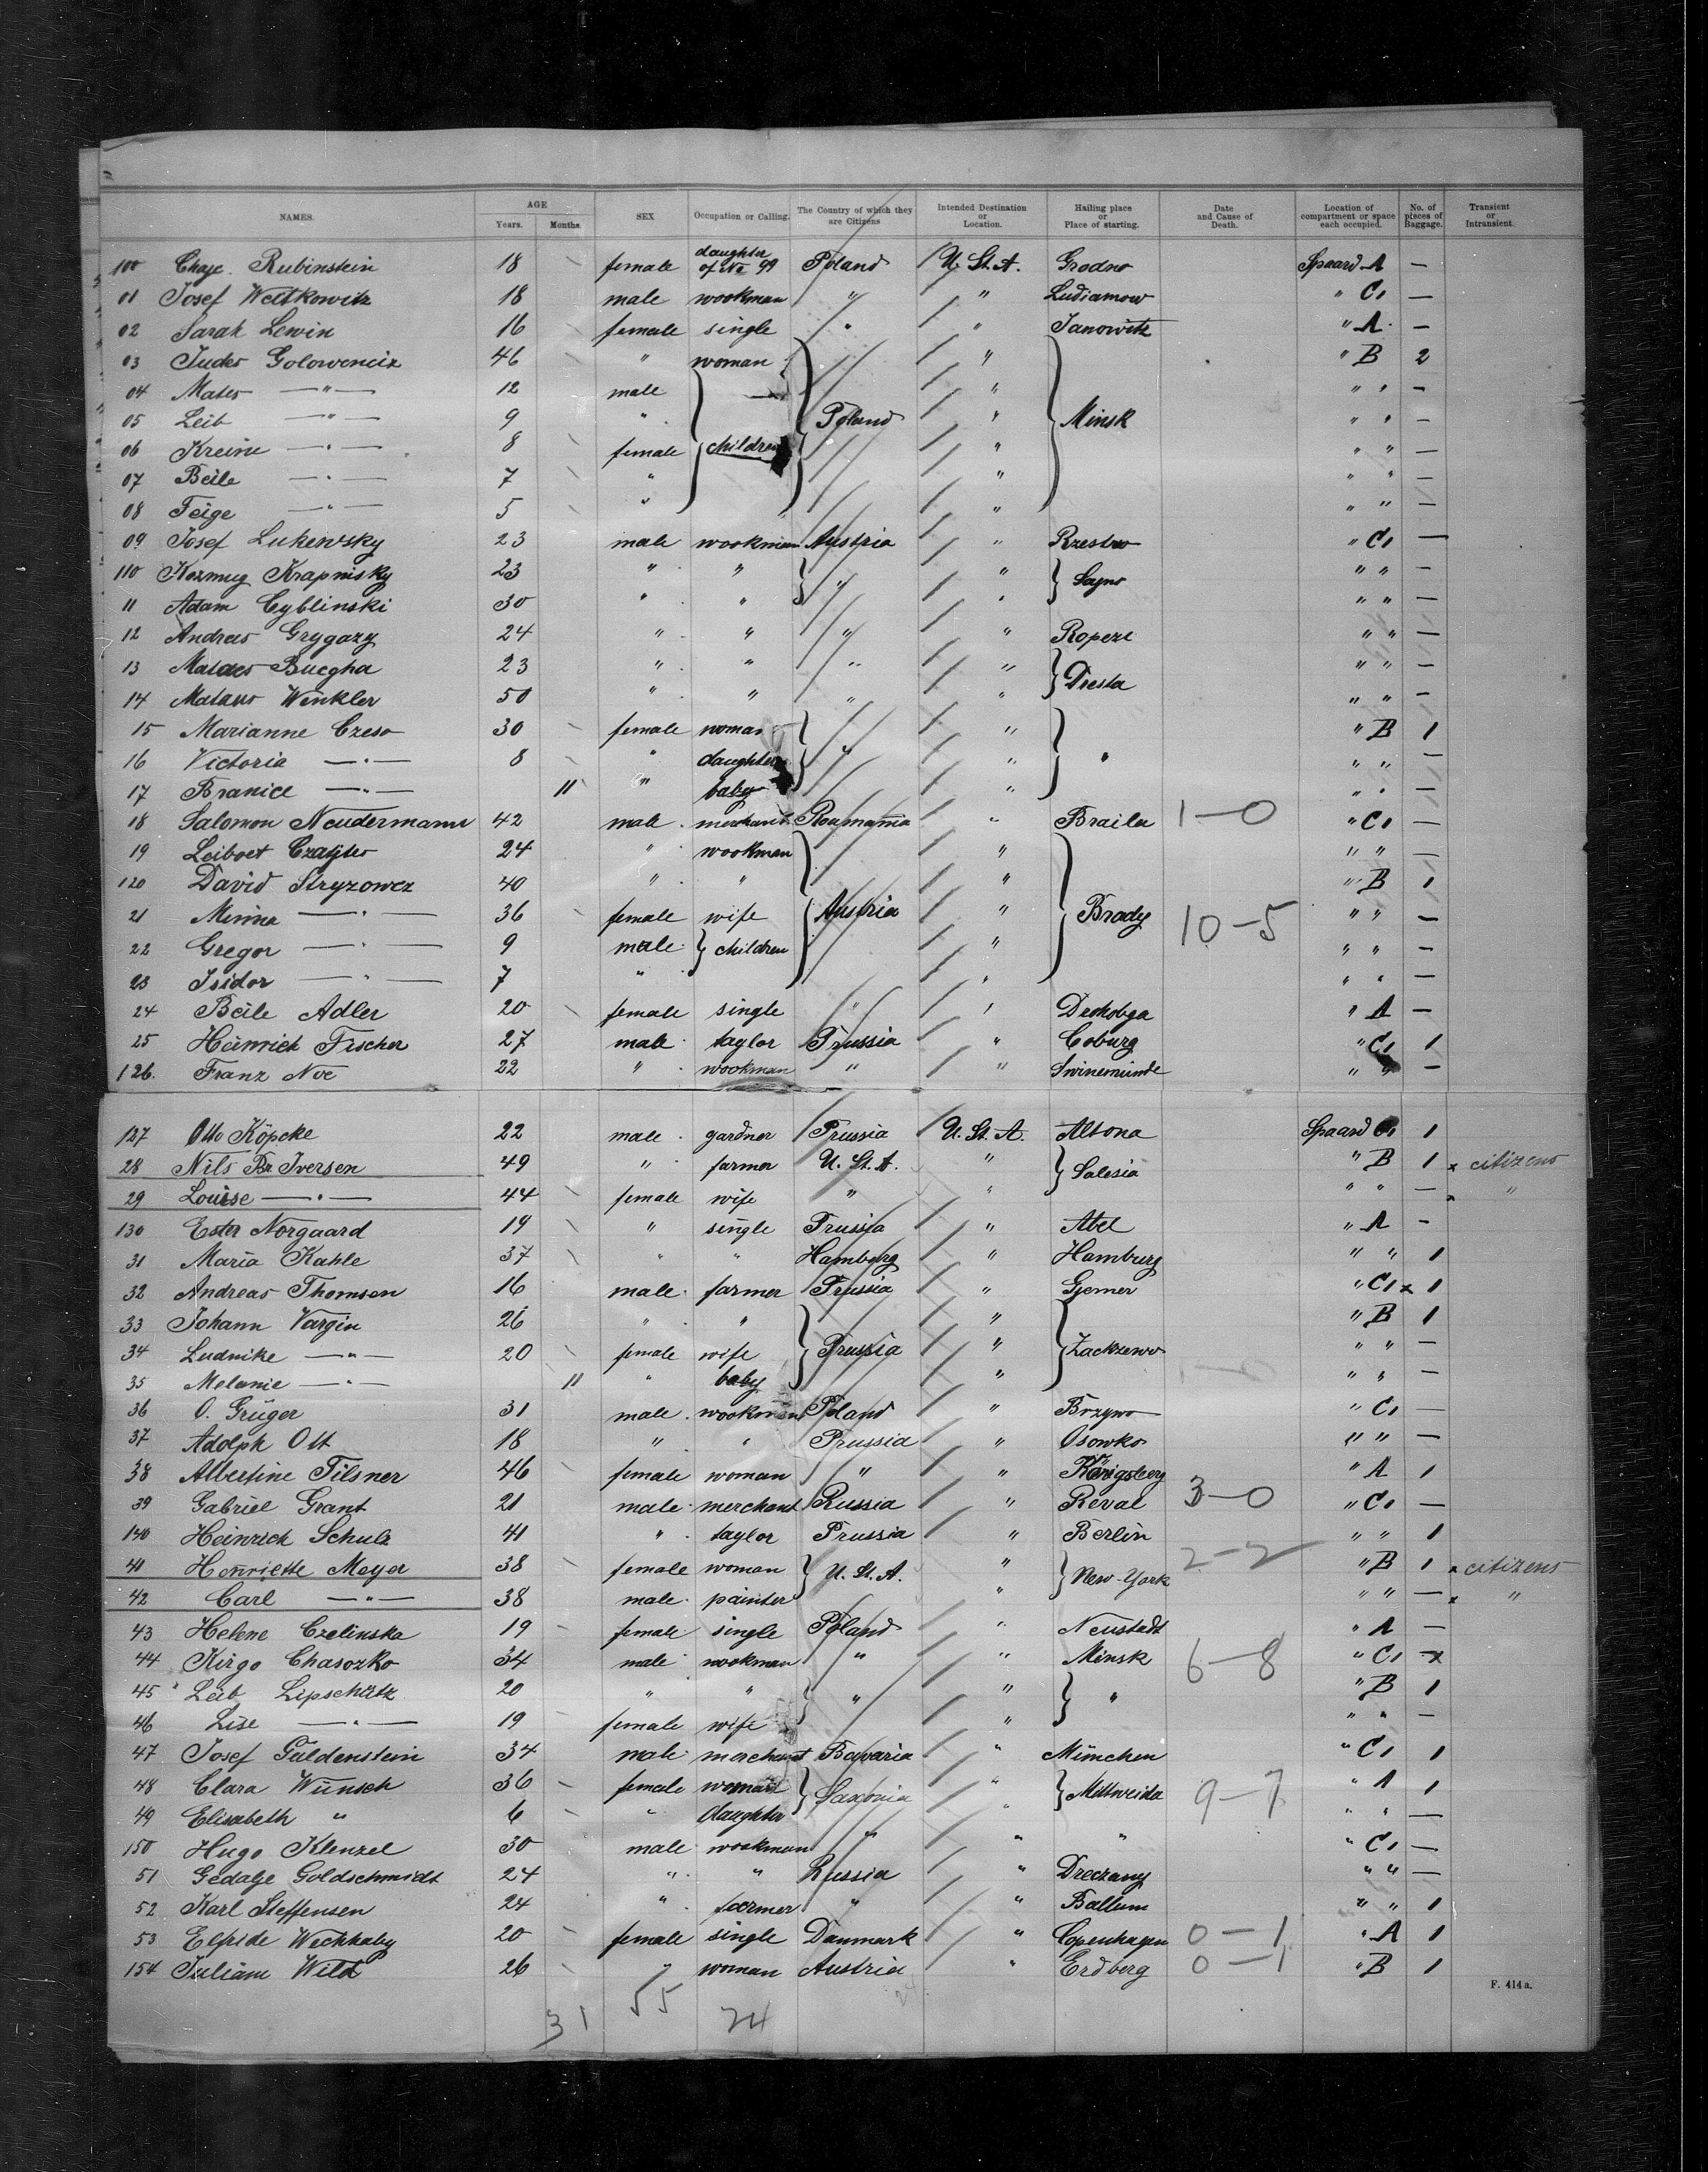 NAMES. AGE Years. Months. SEX Occupation or Calling. The Country of which they are Citizens Intended Destination or Location. Hailing place or Place of starting. Date and Cause of Death. Location of compartment or space each occupied. No. of pieces of Baggage. Transient or Intransient.
100 Chaje Rubinstein 18 female daughter of No 99 Poland U. St. A. Grodno Spaard A —
01 Josef Weitkowitz 18 male wookman " " Ludiamow " C1 —
02 Sarah Lewin 16 female single " " Janowitz " A —
03 Judes 46 " woman " " B 2
04 — " — 12 male " " " —
05 Leib — " — 9 " Poland " Minsk " " —
06 Kreine — " — 8 female children " " " —
07 Beile — " — 7 " " " " —
08 Feige — " — 5 " " " " —
09 Josef Lukewsky 23 male wookman Austria " " C1 —
110 Krapnisky 23 " " " " " " —
11 Adam Cyblinski 30 " " " " " —
12 Andreas Grygazy 24 " " " " Ropeze " " —
13 23 " " " " Dresta " " —
14 Winkler 50 " " " " " " —
15 Marianne Czeso 30 female woman " " B 1
16 Victoria — " — 8 " daughter " " " " " —
17 Branice — " — 11 " baby " " " —
18 Salomon Neudermann 42 male merchant Roumania " Braila 1—0 " C1 —
19 24 " wookman " " " —
120 David Stryzowez 40 " " " " B 1
21 Minna — " — 36 female wife Austria " Brady 10—5 " " —
22 Gregor — " — 9 male children " " " —
23 Isidor — " — 7 " " " " —
24 Beile Adler 20 female single " " " A —
25 Heinrich Fischer 27 male taylor Prussia " Coburg " C1 1
126. Franz Noe 22 " wookman " " Swinemünde " " —
127 Otto Köpcke 22 male gardner Prussia U. St. A. Altona Spaard C1 1
28 Nils Br Iversen 49 " farmer U. St. A. " Salesia " B 1 x citizens
29 Louise — " — 44 female wife " " " " — x "
130 Ester Norgaard 19 " single Prussia " Abel " A —
31 Maria Kahle 37 " " Hamburg " Hamburg " " 1
32 Andreas Thomsen 16 male farmer Prussia " Gjenner " C1 x 1
33 Johann Vargin 26 " " " " B 1
34 Ludwike — " — 20 female wife Prussia " Zackzewo " " —
35 Melanie — " — 11 " baby " " " —
36 O. Grüger 31 male wookman Poland " Brzywo " C1 —
37 Adolph Ott 18 " " Prussia " Osowko " " —
38 Albertine Tilsner 46 female woman " " Königsberg " A 1
39 Gabriel Grant 21 male merchant Russia " Reval 3—0 " C1 —
140 Heinrich Schulz 41 " taylor Prussia " Berlin " " 1
41 Henriette Meyer 38 female woman U. St. A. " New-York 2—2 " B 1 x citizens
42 Carl — " — 38 male painter " " " — x "
43 Helene Czelinska 19 female single Poland " Neustadt " A —
44 Kirgo Chasozko 34 male wookman " " Minsk 6—8 " C1 —x
45 Leib Lipschütz 20 " " " " " " B 1
46 Lise — " — 19 female wife " " " —
47 Josef Güldenstein 34 male merchant Bavaria " München " C1 1
48 Clara Wünsch 36 female woman Saxonia " Mittweida 9—7 " A 1
49 Elisabeth " 6 " daughter " " " —
150 Hugo Klenzel 30 male wookman " " " " C1 —
51 Gedalje Goldschmidt 24 " " Russia " Dreczany " " —
52 Karl Steffensen 24 " farmer " " Ballum " " 1
53 Elfride Weckhaby 20 female single Danmark " Copenhagen 0—1 " A 1
154 Juliam Wild 26 " woman Austria " Erdberg 0—1 " B 1
F. 414 a.
31 55 24